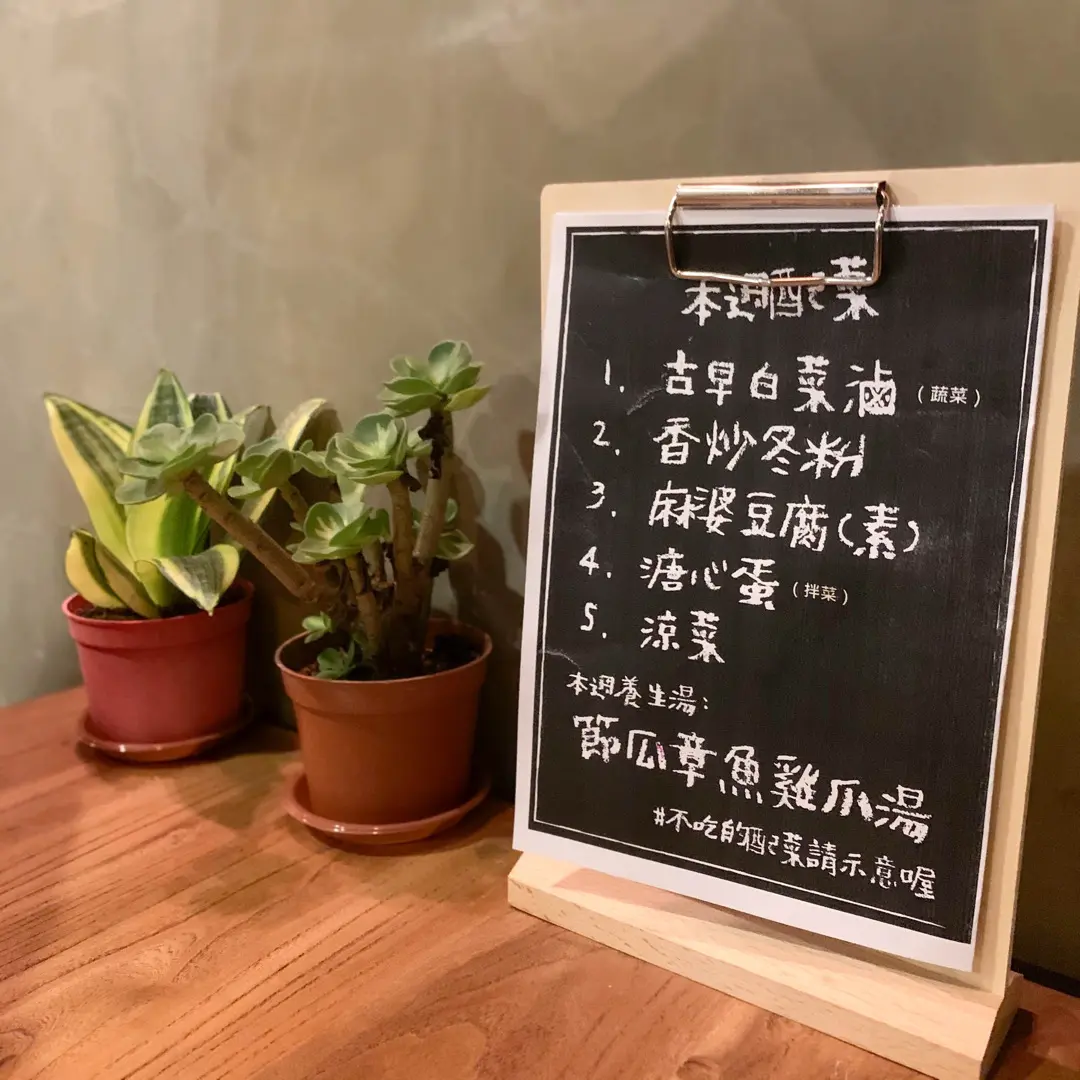 本週配菜
1. 古早白菜滷 (蔬菜)
2. 香炒冬粉
3. 麻婆豆腐(素)
4. 溏心蛋 (拌菜)
5. 涼菜
本週養生湯:
節瓜章魚雞爪湯
#不吃的配菜請示意喔